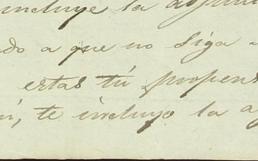 incluye la
do a que no siga
estas tú propens
, te incluyo la a